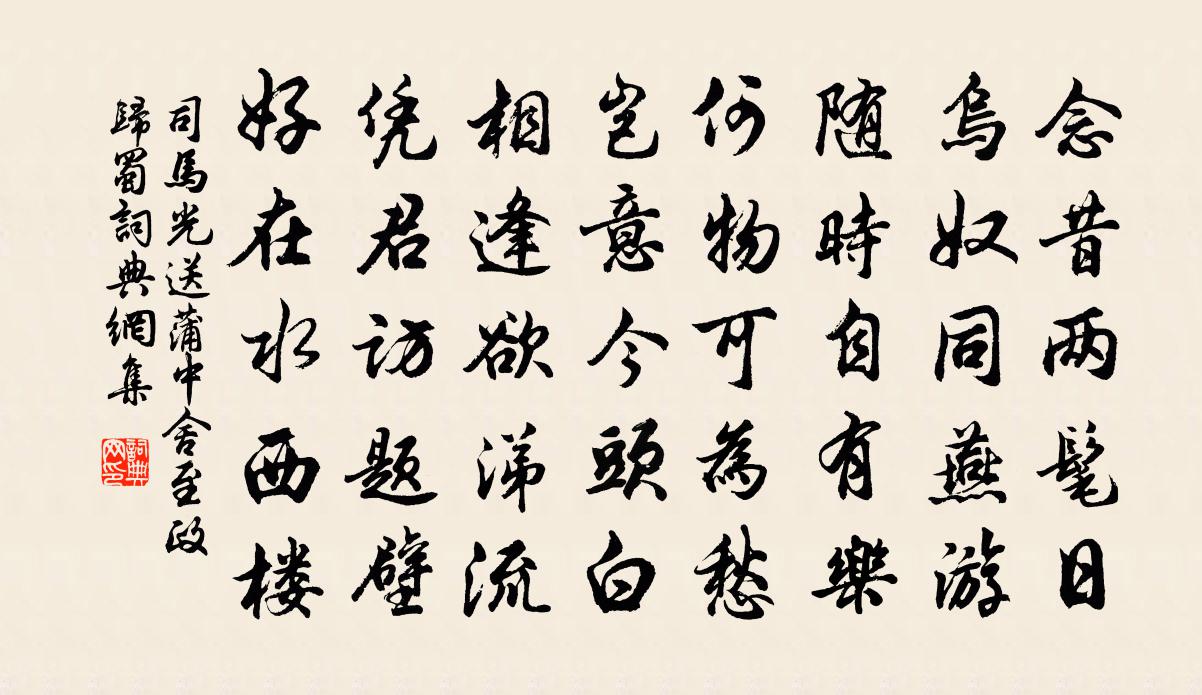 念昔两髦日
烏奴同燕游
随時自有樂
何物可為愁
岂意今頭白
相逢欲涕流
凭君訪题壁
好在水西楼
司馬光送蒲中舍至政
歸蜀詞典網集
詞典网印